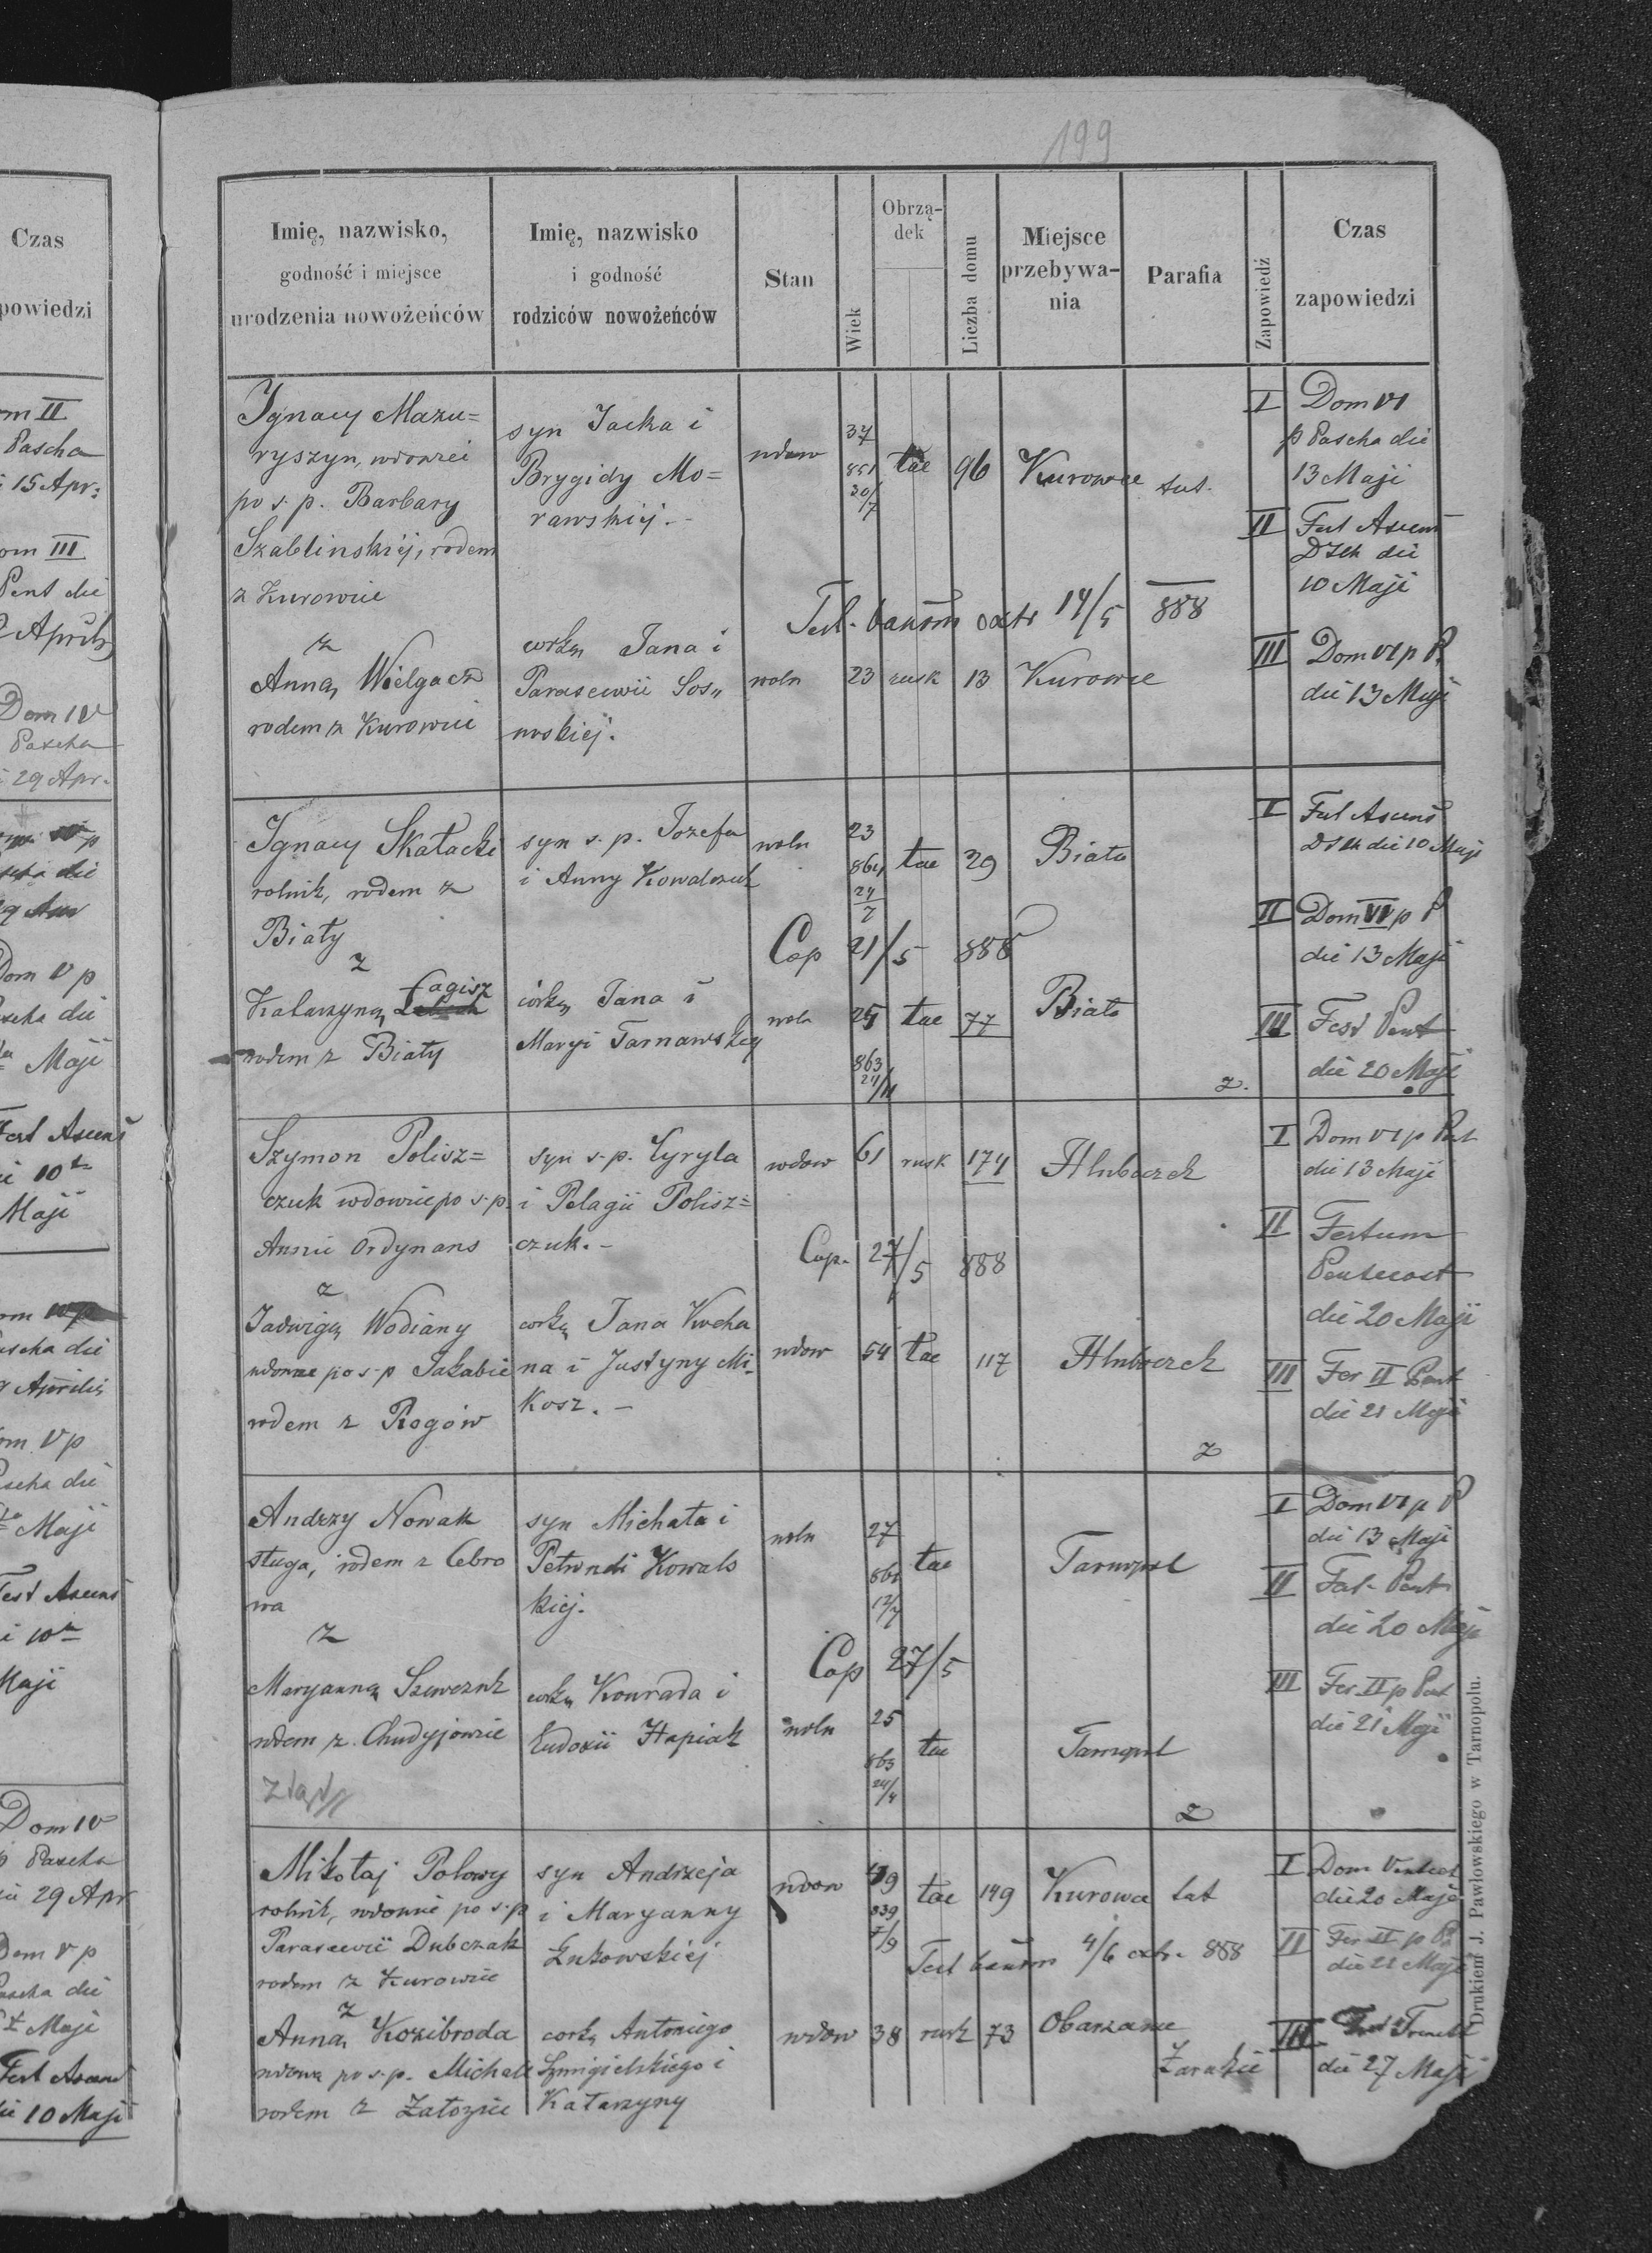 199
Czas
powiedzi
m II
Pascha
15 Apr:
om III
Pent die
Aprilis
Dom IV
Pascha
29 Apr.
Dom V p
die
Maji
Fest Ascens
10
Maji
die
Aprilis
om V p
Pascha die
Maji
Fest Ascens
10
Maji
Dom IV
p Pascha
die 29 Apr
Dom V p
Pascha die
Maji
Fest Ascens
die 10 Maji
Imię, nazwisko,
godność i miejsce
urodzenia nowożeńców
Imię, nazwisko
i godność
rodziców nowożeńców
Stan
Wiek
Obrzą-
dek
Liczba domu
Miejsce
przebywa-
nia
Parafia
Zapowiedź
Czas
zapowiedzi
Ignacy Mazu=
ryszyn, wdowiec
po s. p. Barbary
Szablinskiej, rodem
z Kurowiec
z
Anną Wielgacz
rodem z Kurowiec
syn Jacka i
Brygidy Mo=
rawskiej.-
corką Jana i
Parascewii Sos„
noskiej.
wdow
37
851
30/7
łac
96
Kurowce
tut.
Test. bannor extr 14/5 888
woln
23
rusk
13
Kurowce
I
Dom VI
p Pascha die
13 Maji
II
Fest Ascens
die
10 Maji
III
Dom VI p P.
die 13 Maji
Ignacy Skałacki
rolnik, rodem z
Biały
z
Katarzyną Łagisz
rodem z Biały
syn s. p. Jozefa
i Anny Kowalczuk
córką Jana i
Maryi Tarnawskiej
woln
23
864
24
7
łac
29
Biała
Cop 21/5 888
woln
25
łac
77
Biała
863
24/11
z.
I
Fest Ascens
die 10 Maji
II
Dom VI p P
die 13 Maji
III
Fest Pent
die 20 Maji
Szymon Polisz=
czuk wdowiec po s. p.
Annie Ordynans
z
Jadwigą Wodiany
wdowa po s. p Jakobie
rodem z Rogów
syn s. p. Cyryla
i Pelagii Polisz=
czuk.-
corką Jana Kucha
na i Justyny Mi-
kosz.-
wdow
61
rusk
174
Hluboczek
Cop. 27/5 888
wdow
54
łac
117
Hluboczek
z
I
Dom VI p Pat
die 13 Maji
II
Festum
Pentecost
die 20 Maji
III
Fer II Pent
die 21 Maji
Andrzy Nowak
sługa, rodem z Cebro
wa
z
Maryanną Szewczuk
rodem z Chudyjowiec
syn Michała i
Petroneli Kowals
kiej.
corką Konrada i
Eudoxii Hapiak
woln
27
861
12/7
łac
Tarnopol
Cop 27/5
woln
25
863
24/4
łac
Tarnopol
z
I
Dom VI p P
die 13 Maji
II
Fest. Pent
die 20 Maji
III
Fer. II p Pent
die 21 Maji
Mikołaj Polowy
rolnik, wdowiec po s. p
Parascewii Dubczak
rodem z Kurowiec
z
Anną Kozibroda
wdowa po s. p. Michale
rodem z Załoziec
syn Andrzeja
i Maryanny
Żukowskiej
corką Antoniego
Szmigielskiego i
Katarzyny
wdow
49
839
7/9
łac
149
Kurowce
tut
Test bannor 4/6 extr. 888
wdow
38
rusk
73
Obarzance
I
die 20 Maji
II
Fer II p
die 21 Maji
III
die 27 Maji
Drukiem J. Pawłowskiego w Tarnopolu.